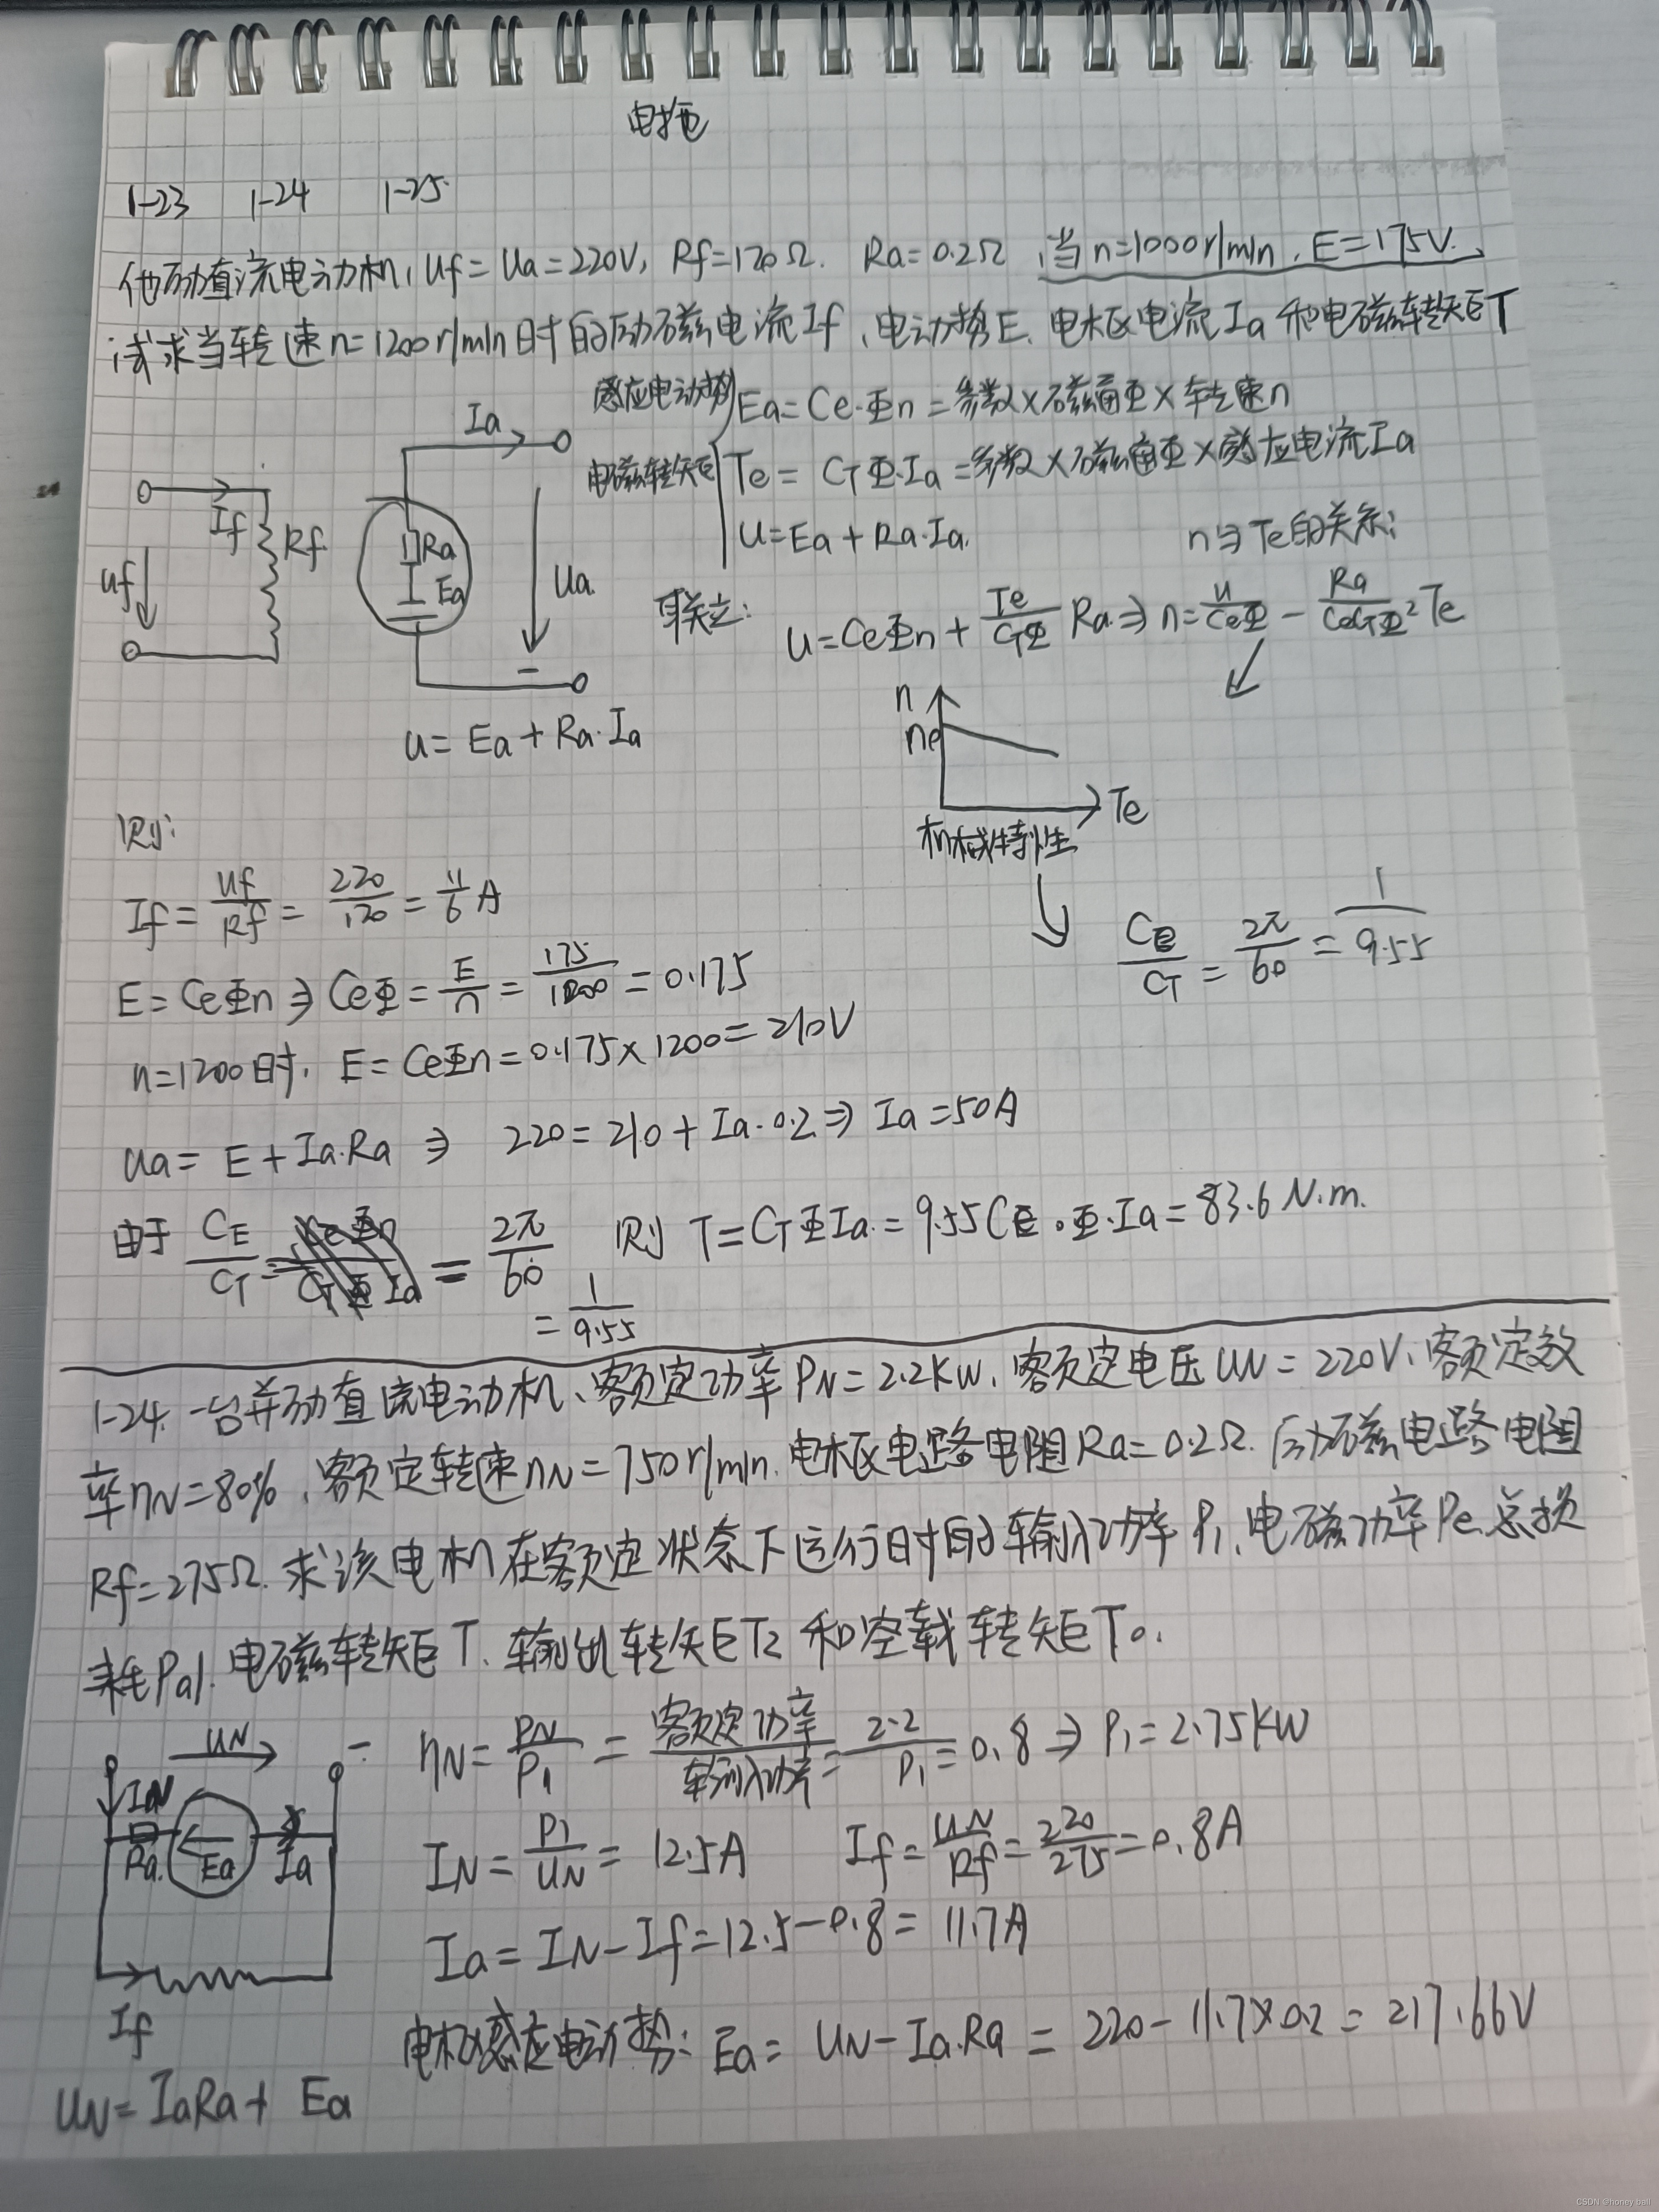 电拖
1-23 1-24 1-25
他励直流电动机, Uf=Ua=220V, Rf=120Ω. Ra=0.2Ω, 当n=1000r/min, E=175V.
试求当转速n=1200r/min时的励磁电流If、电动势E、电枢电流Ia和电磁转矩T
感应电动势 Ea=Ce·Φn=参数×磁通Φ×转速n
电磁转矩 Te=CTΦ·Ia=参数×磁通Φ×感应电流Ia
U=Ea+Ra·Ia.
n与Te的关系:
联立: U=CeΦn+Te/CTΦ Ra⇒n=U/CeΦ-Ra/CeCTΦ²Te
Ia
If Rf
Uf
Ra
Ea
Ua
-
U=Ea+Ra·Ia
n
n0
Te
机械特性
CE/CT=2π/60=1/9.55
则:
If=Uf/Rf=220/120=11/6A
E=CeΦn⇒CeΦ=E/n=175/1000=0.175
n=1200时, E=CeΦn=0.175×1200=210V
Ua=E+Ia·Ra⇒220=210+Ia·0.2⇒Ia=50A
由于CE/CT=2π/60 则T=CTΦIa=9.55CE·Φ·Ia=83.6N·m.
=1/9.55
1-24. 一台并励直流电动机、额定功率PN=2.2KW、额定电压UN=220V、额定效
率ηN=80%、额定转速nN=750r/min. 电枢电路电阻Ra=0.2Ω. 励磁电路电阻
Rf=275Ω. 求该电机在额定状态下运行时的输入功率P1、电磁功率Pe、总损
耗Pal. 电磁转矩T、输出转矩T2和空载转矩T0.
UN -
IN
Ra Ea Ia
If
UN=IaRa+Ea
ηN=PN/P1=额定功率/输入功率=2.2/P1=0.8⇒P1=2.75KW
IN=P1/UN=12.5A If=UN/Rf=220/275=0.8A
Ia=IN-If=12.5-0.8=11.7A
电枢感应电动势: Ea=UN-Ia·Ra=220-11.7×0.2=217.66V
CSDN @honey ball